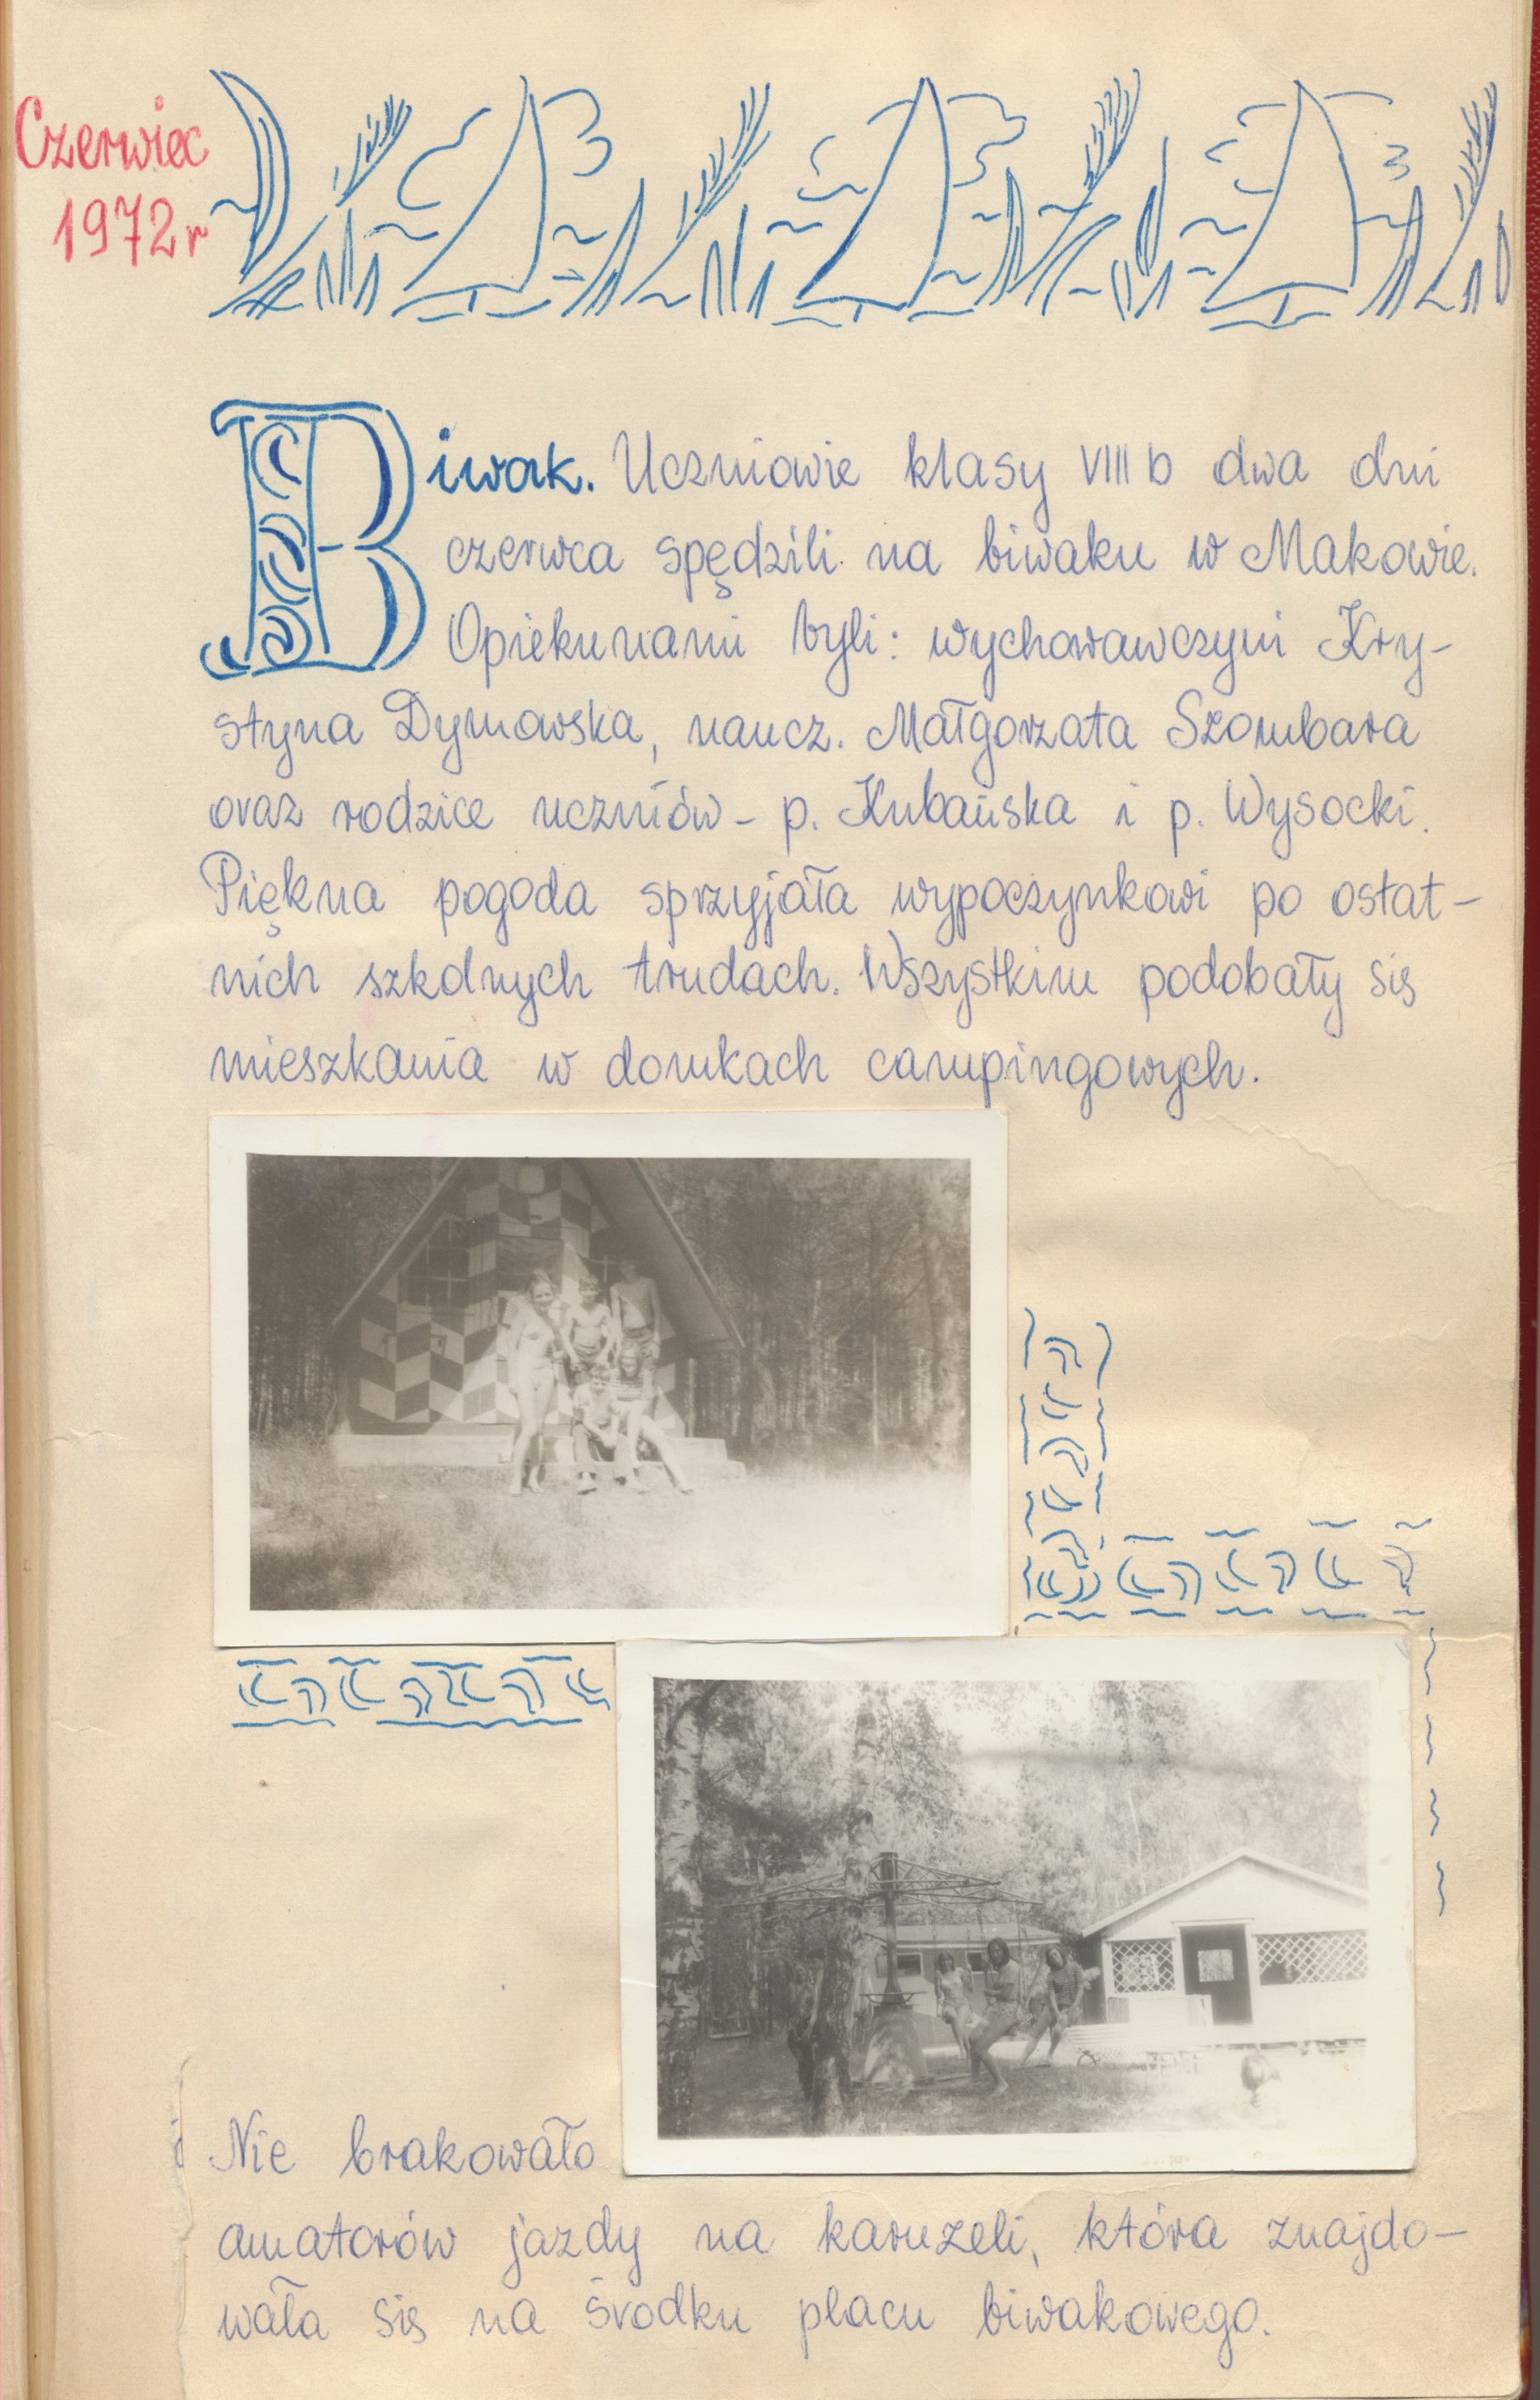 Czerwiec
1972 r
Biwak. Uczniowie klasy VIII b dwa dni
czerwca spędzili na biwaku w Makowie.
Opiekunami byli: wychowawczyni Kry-
styna Dymowska, naucz. Małgorzata Szombara
oraz rodzice uczniów - p. Kubańska i p. Wysocki.
Piękna pogoda sprzyjała wypoczynkowi po ostat-
nich szkolnych trudach. Wszystkim podobały się
mieszkania w domkach campingowych.
Nie brakowało
amatorów jazdy na karuzeli, która znajdo-
wała się na środku placu biwakowego.